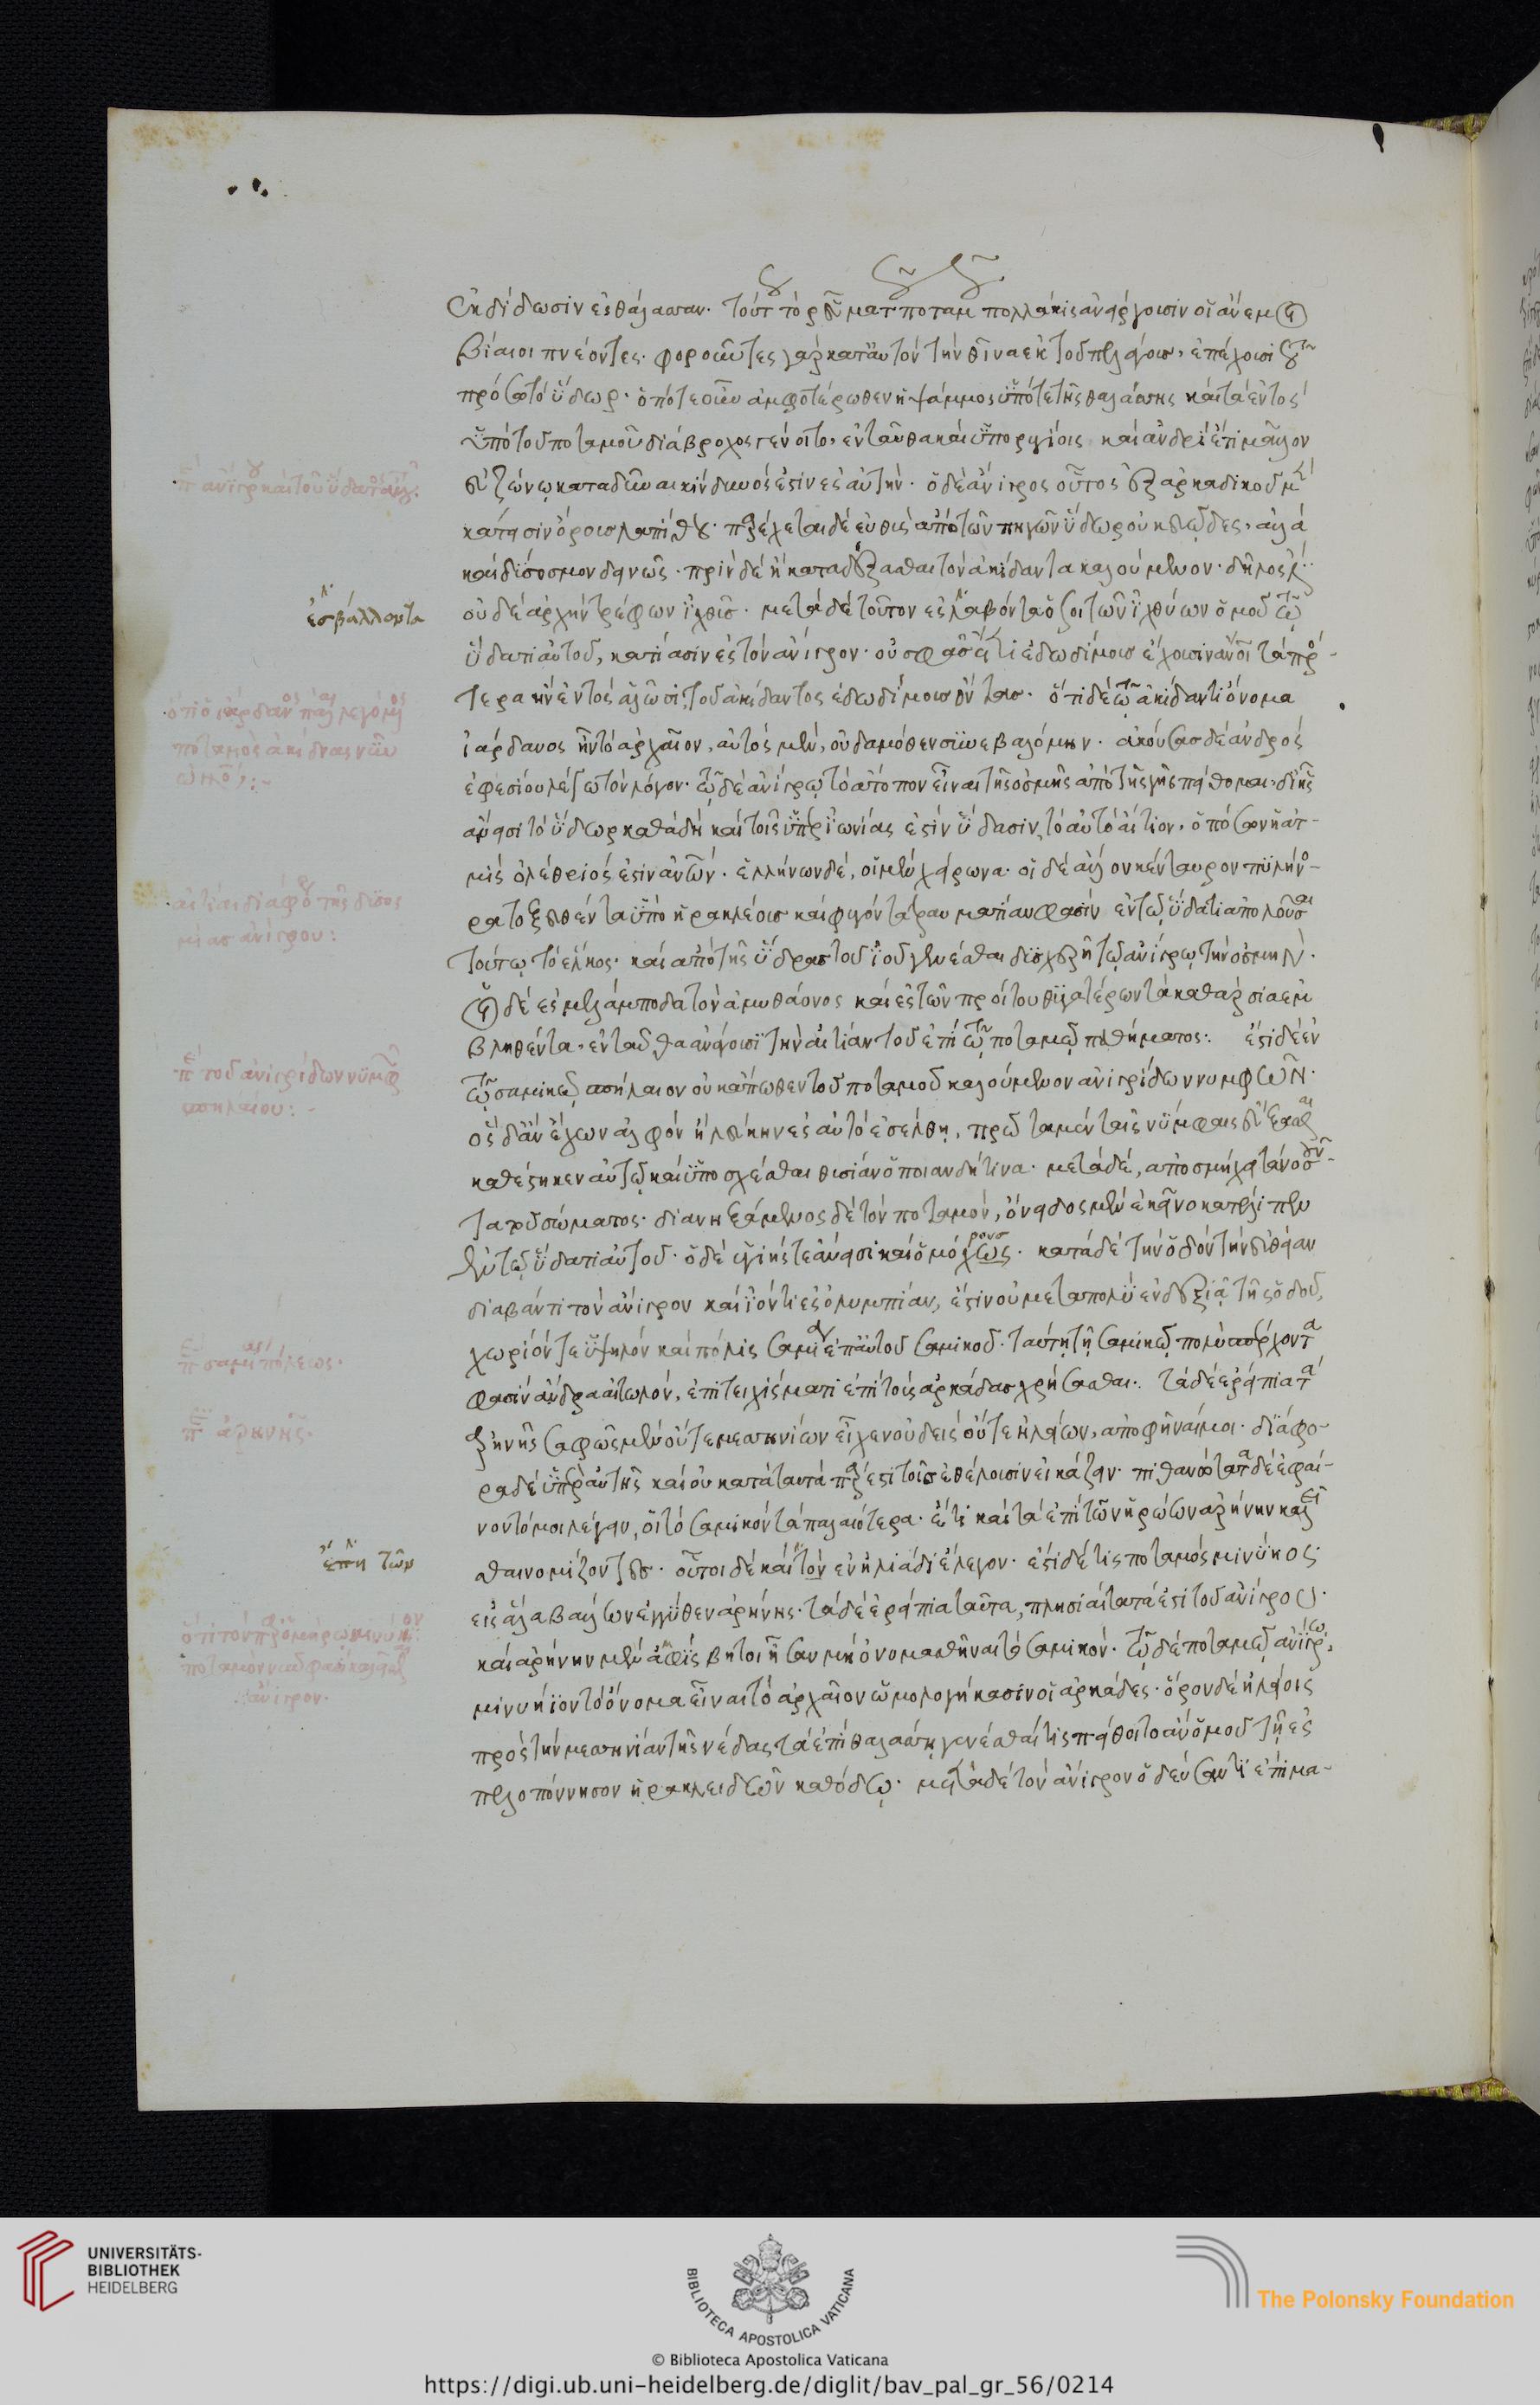 ἐκδίδωσιν ἐς θάλασσαν· τούτου τὸ ῥεῦμα τοῦ ποταμοῦ πολλάκις ἀνείργουσιν οἱ ἄνεμοι
βίαιοι πνέοντες· φοροῦντες γὰρ κατ' αὐτὸν τὴν θῖνα ἐκ τοῦ πελάγους, ἐπέχουσι
πρόσω τὸ ὕδωρ· ὁπότε οὖν ἀμφοτέρωθεν ἡ ψάμμος ὑπό τε τῆς θαλάσσης καὶ τὰ ἐντὸς
ὑπὸ τοῦ ποταμοῦ διάβροχος γένοιτο, ἐνταῦθα καὶ ὑποζυγίοις καὶ ἀνδρὶ ἔτι μᾶλλον
εὐζώνῳ καταδῦναι κίνδυνός ἐστιν ἐς αὐτήν· ὁ δὲ ἄνιγρος οὗτος ἐξ ἀρκαδικοῦ μὲν
κάτεισιν ὄρους λαπίθου· παρέχεται δὲ εὐθὺς ἀπὸ τῶν πηγῶν ὕδωρ οὐκ εὐῶδες, ἀλλὰ
καὶ δύσοσμον δεινῶς· πρὶν δὲ ἢ καταδέξασθαι τὸν ἀκίδαντα καλούμενον· δῆλός ἐστιν
οὐδὲ ἀρχὴν τρέφων ἰχθῦς· μετὰ δὲ τοῦτον ἐσλαβόντα ὅσοι τῶν ἰχθύων ὁμοῦ τῷ
ὕδατι αὐτοῦ, κατίασιν ἐς τὸν ἄνιγρον· οὐ σφᾶς ἔτι ἐδωδίμους ἔχουσιν ἄνθρωποι τὰ πρό-
τερα ἢν ἐντὸς ἁλῶσι, τοῦ ἀκίδαντος ἐδωδίμους ὄντας· ὅτι δὲ τῷ ἀκίδαντι ὄνομα
ἰάρδανος ἦν τὸ ἀρχαῖον, αὐτὸς μὲν, οὐδαμόθεν συνεβαλόμην· ἀκούσας δὲ ἀνδρὸς
ἐφεσίου λέγω τὸν λόγον· τῷ δὲ ἀνίγρῳ τὸ ἄτοπον εἶναι τῆς ὀσμῆς ἀπὸ τῆς γῆς πείθομαι, δι' ἧς
ἄνεισι τὸ ὕδωρ καθὰ δὴ καὶ τοῖς ὑπὲρ ἰωνίας ἐστὶν ὕδασιν, τὸ αὐτὸ αἴτιον, ὁπόσων ἡ ἀτ-
μὶς ὀλέθριός ἐστιν ἀνθρώπῳ· ἑλλήνων δέ, οἱ μὲν χείρωνα· οἱ δὲ ἄλλον κένταυρον πυλήνο-
ρα τοξευθέντα ὑπὸ ἡρακλέους καὶ φυγόντα τραυματίαν φασὶν ἐν τῷ ὕδατι ἀπολοῦσαι
τούτῳ τὸ ἕλκος· καὶ ἀπὸ τῆς ὕδρας τοῦ ἰοῦ γενέσθαι δυσχερῆ τῷ ἀνίγρῳ τὴν ὀσμήν·
οἱ δὲ ἐς μελάμποδα τὸν ἀμυθάονος καὶ ἐς τῶν προίτου θυγατέρων τὰ καθάρσια ἐμ
βληθέντα, ἐνταῦθα ἀνάγουσι τὴν αἰτίαν τοῦ ἐπὶ τῷ ποταμῷ παθήματος: ἔστι δὲ ἐν
τῷ σαμικῷ σπήλαιον οὐκ ἄπωθεν τοῦ ποταμοῦ καλούμενον ἀνιγρίδων νυμφῶν·
ὃς δ' ἂν ἔχων ἀλφὸν ἢ λεύκην ἐς αὐτὸ ἐσέλθῃ, πρῶτα μὲν ταῖς νύμφαις εὔξασθαι
καθέστηκεν αὐτῷ καὶ ὑποσχέσθαι θυσίαν ὁποίαν δή τινα· μετὰ δέ, ἀποσμήχει τὰ νοσοῦν-
τα τοῦ σώματος· διανηξάμενος δὲ τὸν ποταμόν, ὄνειδος μὲν ἐκεῖνο κατέλιπεν
ἐν τῷ ὕδατι αὐτοῦ· ὁ δὲ ὑγιής τε ἄνεισι καὶ ὁμόχρως· κατὰ δὲ τὴν ὁδὸν τὴν εὐθεῖαν
διαβάντι τὸν ἄνιγρον καὶ ἰόντι ἐς ὀλυμπίαν, ἔστιν οὐ μετὰ πολὺ ἐν δεξιᾷ τῆς ὁδοῦ,
χωρίόν τε ὑψηλὸν καὶ πόλις σαμία ἐπ' αὐτοῦ σαμικοῦ· ταύτῃ τῇ σαμικῷ πολυσπέρχοντα
φασὶν ἄνδρα αἰτωλόν, ἐπιτειχίσματι ἐπὶ τοὺς ἀρκάδας χρήσασθαι: τὰ δὲ ἐρείπια τὰ
ἀρήνης σαφῶς μὲν οὔτε μεσσηνίων εἶχεν οὐδεὶς οὔτε ἠλείων, ἀποφῆναί μοι· διάφο-
ρα δὲ ὑπὲρ αὐτῆς καὶ οὐ κατὰ ταὐτὰ πάρεστι τοῖς ἐθέλουσιν εἰκάζειν· πιθανώτατα δὲ ἐφαί-
νοντό μοι λέγειν, οἳ τὸ σαμικὸν τὰ παλαιότερα· ἔτι καὶ τὰ ἐπὶ τῶν ἡρώων ἀρήνην καλεῖ
σθαι νομίζοντες· οὗτοι δὲ καὶ τὸν ἐν ἠλιάδι ἔλεγον· ἔστι δέ τις ποταμὸς μινύιος
εἰς ἅλα βάλλων ἐγγύθεν ἀρήνης· τὰ δὲ ἐρείπια ταῦτα, πλησιαίτατά ἐστι τοῦ ἀνίγρου·
καὶ ἀρήνην μὲν ἀμφισβητοίη σαν μὴ ὀνομασθῆναι τὸ σαμικόν· τῷ δὲ ποταμῷ ἀνίγρῳ,
μινυήιον τὸ ὄνομα εἶναι τὸ ἀρχαῖον ὡμολογήκασιν οἱ ἀρκάδες· ὅρον δὲ ἠλείοις
πρὸς τὴν μεσσηνίαν τῆς νέδας τὰ ἐπὶ θαλάσσῃ γενέσθαι τις πείθοιτο ἂν ὁμοῦ τῇ ἐς
πελοπόννησον ἡρακλειδῶν καθόδῳ· μετὰ δὲ τὸν ἄνιγρον ὁδεύσαντι ἐπὶ μα-
ἐσβάλλοντα
ἔπη τῶν
UNIVERSITÄTS-
BIBLIOTHEK
HEIDELBERG
BIBLIOTECA APOSTOLICA VATICANA
The Polonsky Foundation
© Biblioteca Apostolica Vaticana
https://digi.ub.uni-heidelberg.de/diglit/bav_pal_gr_56/0214